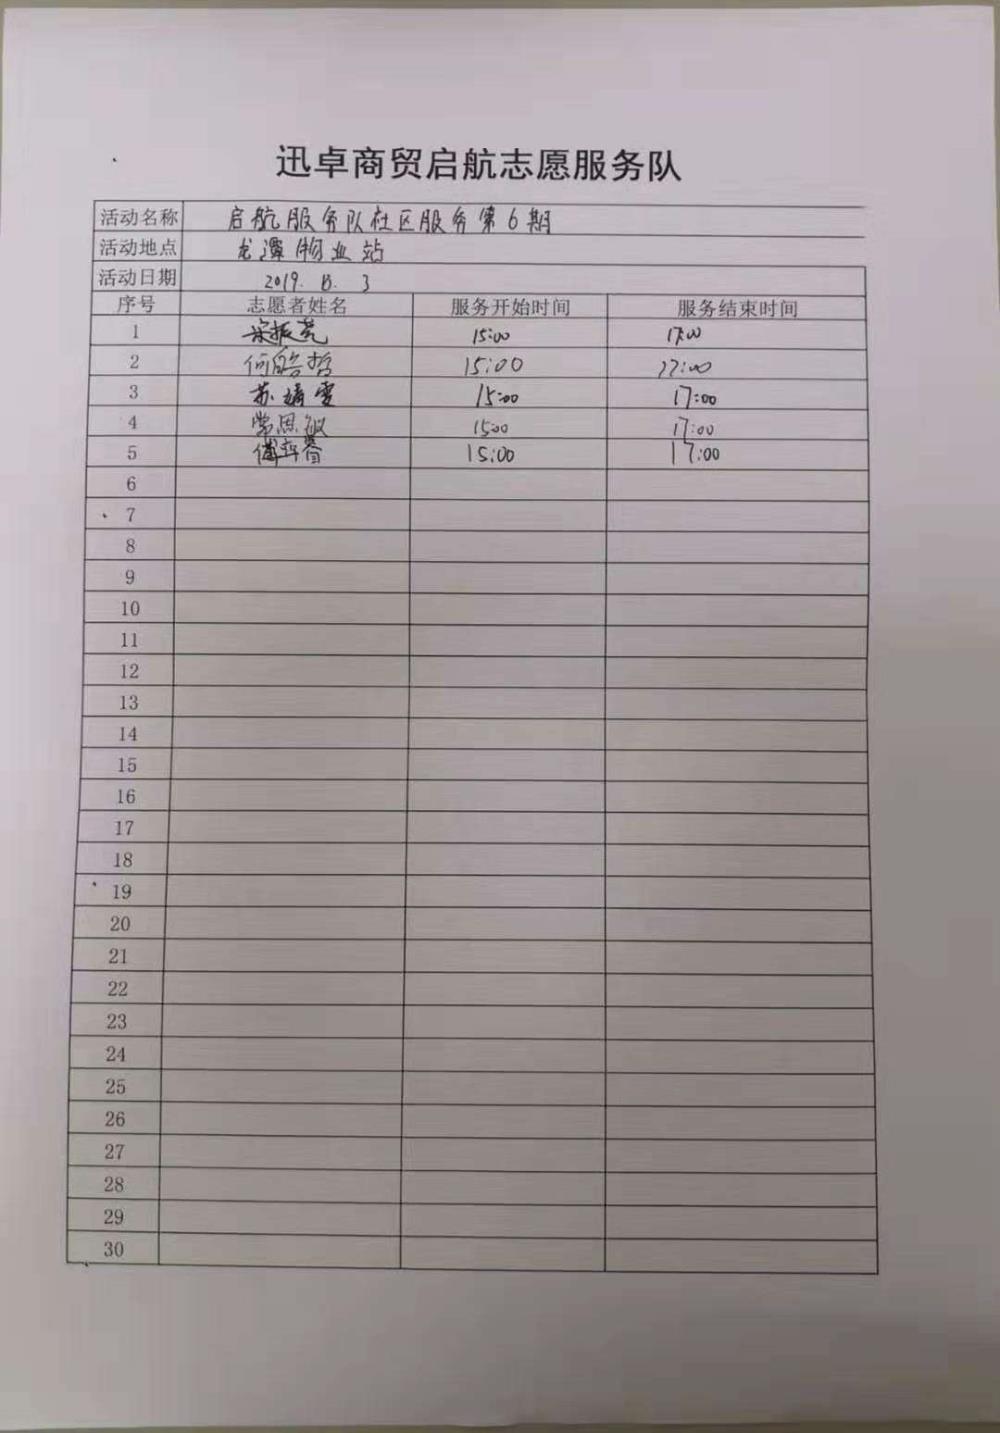 迅卓商贸启航志愿服务队
活动名称 启航服务队社区服务第6期
活动地点 龙潭物业站
活动日期 2019. 3
序号 志愿者姓名 服务开始时间 服务结束时间
1 15:00 17:00
2 何皓哲 15:00 17:00
3 苏靖雯 15:00 17:00
4 常思敏 15:00 17:00
5 15:00 17:00
6
7
8
9
10
11
12
13
14
15
16
17
18
19
20
21
22
23
24
25
26
27
28
29
30